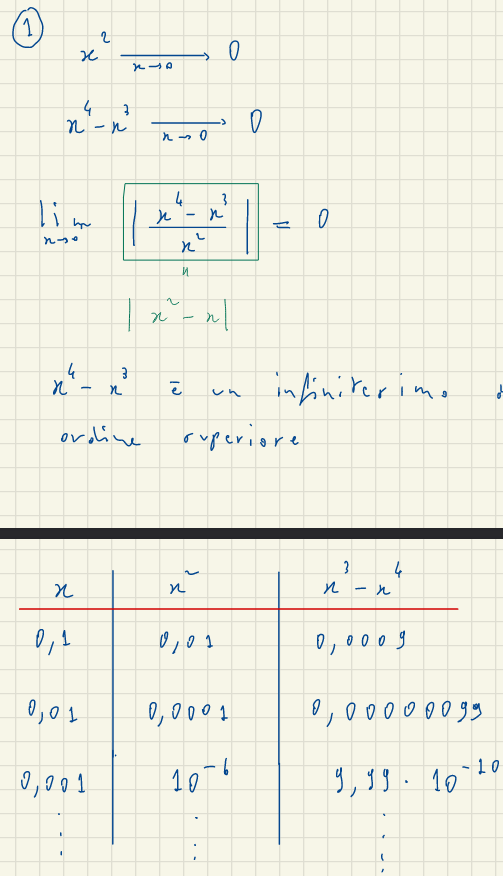 1
x² → 0
x→0
x⁴ - x³ → 0
x→0
lim | (x⁴ - x³) / x² | = 0
x→0
"
| x² - x |
x⁴ - x³ è un infinitesimo d
ordine superiore
x | x² | x³ - x⁴
0,1 | 0,01 | 0,0009
0,01 | 0,0001 | 0,00000099
0,001 | 10⁻⁶ | 9,99 · 10⁻¹⁰
⋮ | ⋮ | ⋮